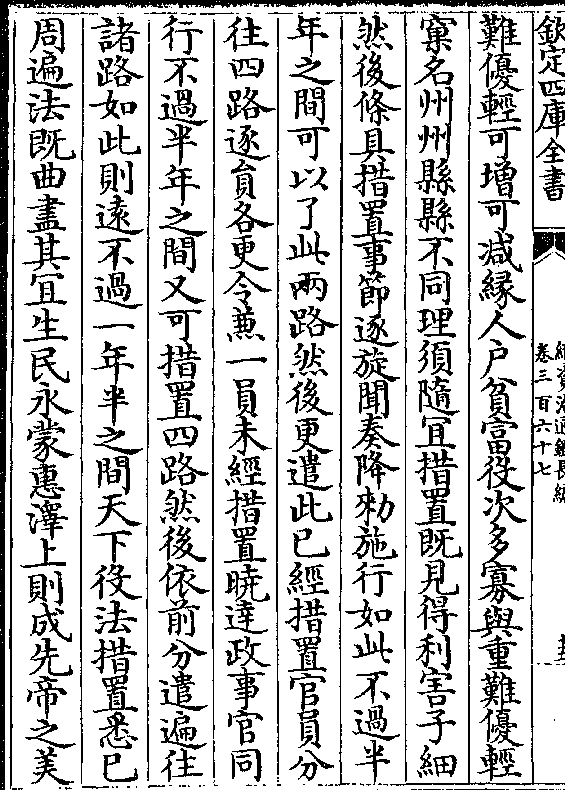 欽定四庫全書
續資治通鑑長編
卷三百六十七
難優輕可增可減緣人户貧富役次多寡與重難優輕
窠名州州縣縣不同理須隨宜措置既見得利害子細
然後條具措置事節逐旋聞奏降勑施行如此不過半
年之間可以了此兩路然後更遣此已經措置官員分
往四路逐員各更令兼一員未經措置曉達政事官同
行不過半年之間又可措置四路然後依前分遣遍往
諸路如此則遠不過一年半之間天下役法措置悉已
周遍法既曲盡其宜生民永蒙惠澤上則成先帝之美